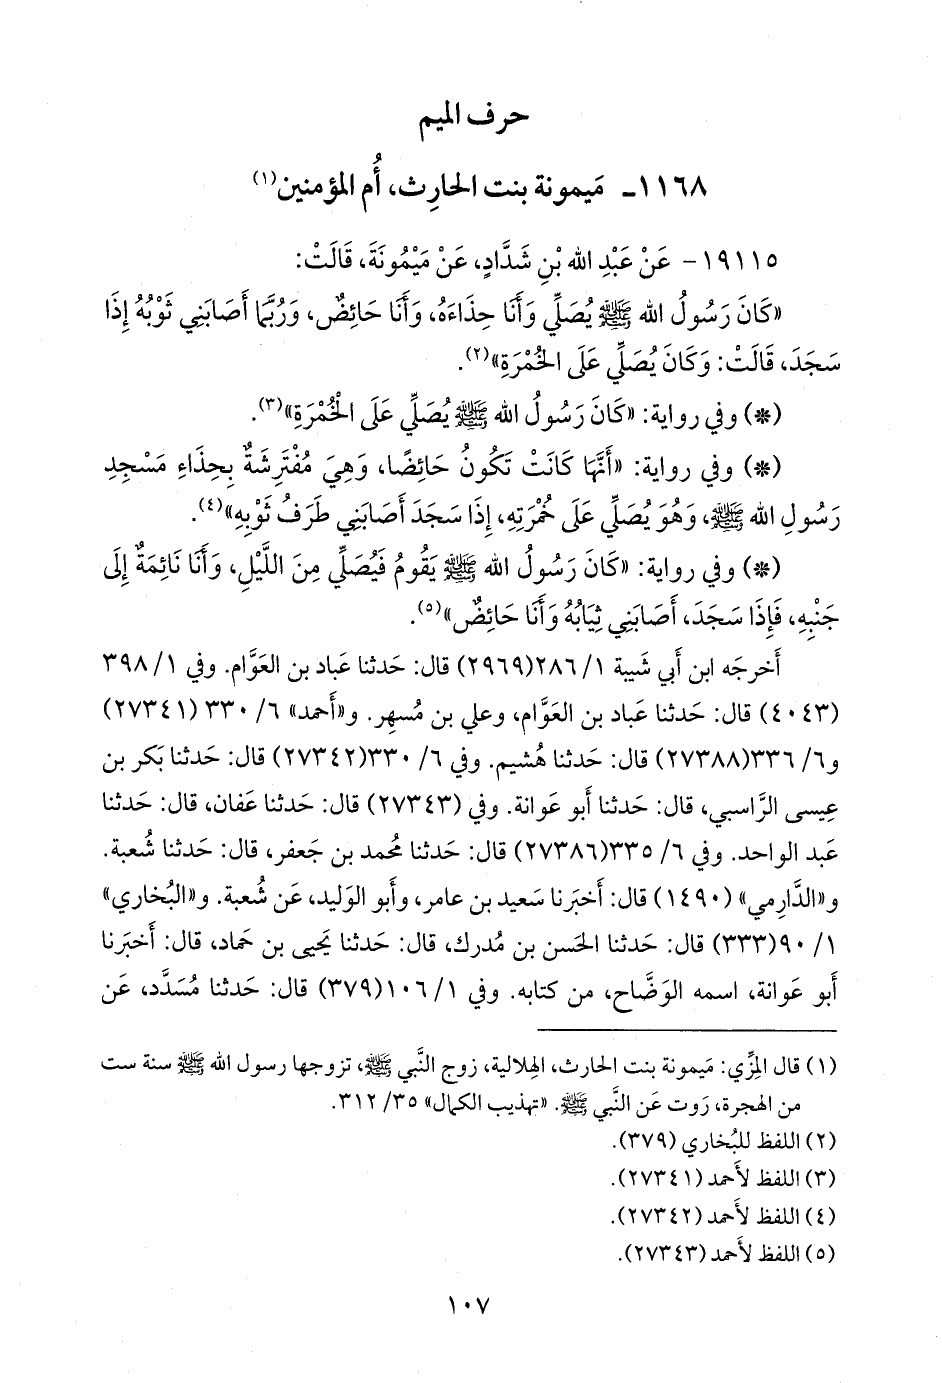 حرف الميم
١١٦٨ـ مَيمونة بنت الحارِث، أُم المؤمنين(١)
١٩١١٥ - عَنْ عَبْدِ الله بْنِ شَدَّادٍ، عَنْ مَيْمُونَةَ، قَالَتْ:
«كَانَ رَسُولُ الله ﷺ يُصَلِّي وَأَنَا حِذَاءَهُ، وَأَنَا حَائِضٌ، وَرُبَّمَا أَصَابَنِي ثَوْبُهُ إِذَا
سَجَدَ، قَالَتْ: وَكَانَ يُصَلِّي عَلَى الخُمْرَةِ»(٢).
(*) وفي رواية: «كَانَ رَسُولُ الله ﷺ يُصَلِّي عَلَى الْخُمْرَةِ»(٣).
(*) وفي رواية: «أَنَّهَا كَانَتْ تَكُونُ حَائِضًا، وَهِيَ مُفْتَرِشَةٌ بِحِذَاءِ مَسْجِدِ
رَسُولِ الله ﷺ، وَهُوَ يُصَلِّي عَلَى خُمْرَتِهِ، إِذَا سَجَدَ أَصَابَنِي طَرَفُ ثَوْبِهِ»(٤).
(*) وفي رواية: «كَانَ رَسُولُ الله ﷺ يَقُومُ فَيُصَلِّي مِنَ اللَّيْلِ، وَأَنَا نَائِمَةٌ إِلَى
جَنْبِهِ، فَإِذَا سَجَدَ، أَصَابَنِي ثِيَابُهُ وَأَنَا حَائِضٌ»(٥).
أَخرجَه ابن أَبي شَيبة ١/ ٢٨٦(٢٩٦٩) قال: حَدثنا عَباد بن العَوَّام. وفي ١/ ٣٩٨
(٤٠٤٣) قال: حَدثنا عَباد بن العَوَّام، وعلي بن مُسهِر. و«أَحمد» ٦/ ٣٣٠ (٢٧٣٤١)
و٦/ ٣٣٦(٢٧٣٨٨) قال: حَدثنا هُشيم. وفي ٦/ ٣٣٠(٢٧٣٤٢) قال: حَدثنا بَكر بن
عِيسى الرَّاسبي، قال: حَدثنا أَبو عَوانة. وفي (٢٧٣٤٣) قال: حَدثنا عَفان، قال: حَدثنا
عَبد الواحد. وفي ٦/ ٣٣٥(٢٧٣٨٦) قال: حَدثنا مُحمد بن جَعفر، قال: حَدثنا شُعبة.
و«الدَّارِمي» (١٤٩٠) قال: أَخبَرنا سَعيد بن عامر، وأَبو الوَليد، عَن شُعبة. و«البُخاري»
١/ ٩٠(٣٣٣) قال: حَدثنا الحَسن بن مُدرك، قال: حَدثنا يَحيى بن حَماد، قال: أَخبَرنا
أَبو عَوانة، اسمه الوَضَّاح، من كتابه. وفي ١/ ١٠٦(٣٧٩) قال: حَدثنا مُسَدَّد، عَن
(١) قال المِزِّي: مَيمونة بنت الحارث، الهِلالية، زوج النَّبي ﷺ، تزوجها رسول الله ﷺ سنة ست
من الهجرة، رَوت عَن النَّبي ﷺ. «تهذيب الكمال» ٣٥/ ٣١٢.
(٢) اللفظ للبُخاري (٣٧٩).
(٣) اللفظ لأَحمد (٢٧٣٤١).
(٤) اللفظ لأَحمد (٢٧٣٤٢).
(٥) اللفظ لأَحمد (٢٧٣٤٣).
١٠٧